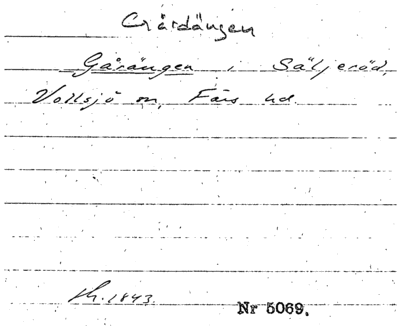 Gårdängen
Gåsängen i Säljeröd,
Vollsjö sn, Färs hd
1843
Nr 5069.